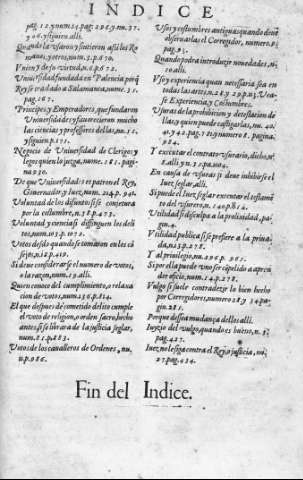 INDICE
pag. 12. y num. 24. pag. 296. y nu. 37.
y 96. y siguien. alli.
Quando la usaron y hizieron assi los Ro-
manos, y otros, num. 5. p. 670.
Union y de su virtud, n. 6. p. 678.
Universidad fundada en Palencia porq̃
Rey se trasladò a Salamanca, nume. 31.
pag. 267.
Principes y Emperadores, que fundaron
Universidades y favorecieron mucho
las ciencias y professores dellas, nu. 10.
y siguien. p. 171.
Negocio de Universidad de Clerigos y
legos quien lo juzga, nume. 281. pagi-
na 930.
De que Universidades es patron el Rey,
Governador, y Juez, num. 214. p. 941.
Voluntad de los difuntos si se conjetura
por la costumbre, n. 38. p. 473.
Voluntad y ciencia si distinguen los deli-
tos, num. 103. p. 1072.
Votos desde quando se tomaron en los cõ
sejo, n. 12. p. 419.
Si deve considerarse el numero de votos,
o la razon, num. 19. alli.
Quien conoce del cumplimiento, o relaxa
cion de voto, num. 258. p. 814.
El que despues de cometido delito cumple
el voto de religion, o orden sacro, hecho
antes, si se librara de la justicia seglar,
num. 81. p. 883.
Votos de los cavalleros de Ordenes, nu.
p. 986.
Usos y costumbres antiguas quando deve
observarlas el Corregidor, numero.
pag. 91.
Quando podrà introduzir novedades, n.
20. alli.
Uso y experiencia quan necessaria sea en
todas las artes, n. 28. y 29. p. Vea-
se Experiencia y Costumbre.
Usuras de la prohibicion y detestacion de
llas, y quien puede castigarlas, nu. 40.
41. y 42. pag. 781. y numero 8. pagina.
984.
Y executar el contrato usurario, dicho, n.
8. alli y n. 75. p. 1104.
En causa de usuras si deve inhibirse el
Juez seglar, alli.
Si puede el Juez seglar executar el testamẽ
to del usurero, n. 140. p. 814.
Utilidad si disculpa a la prolixidad, pa-
gin. 4.
Utilidad publica si se prefiere a la priva-
da, n. 13. p. 278.
Y al privilegio, n. 306. p. 965.
Si por ella puede uno ser cõpelido a apren
der oficio, num. 142. p. 278.
Vulgo si suele contradezir lo bien hecho
por Corregidores, numero 28. y 34. pa-
gin. 281.
Porque dessea mudança dellos alli.
Juyzio del vulgo, quando es bueno, n. 5.
pag. 427.
Juez no le siga contra el Rey, o justicia, nu.
27. pag. 434.
Fin del Indice.